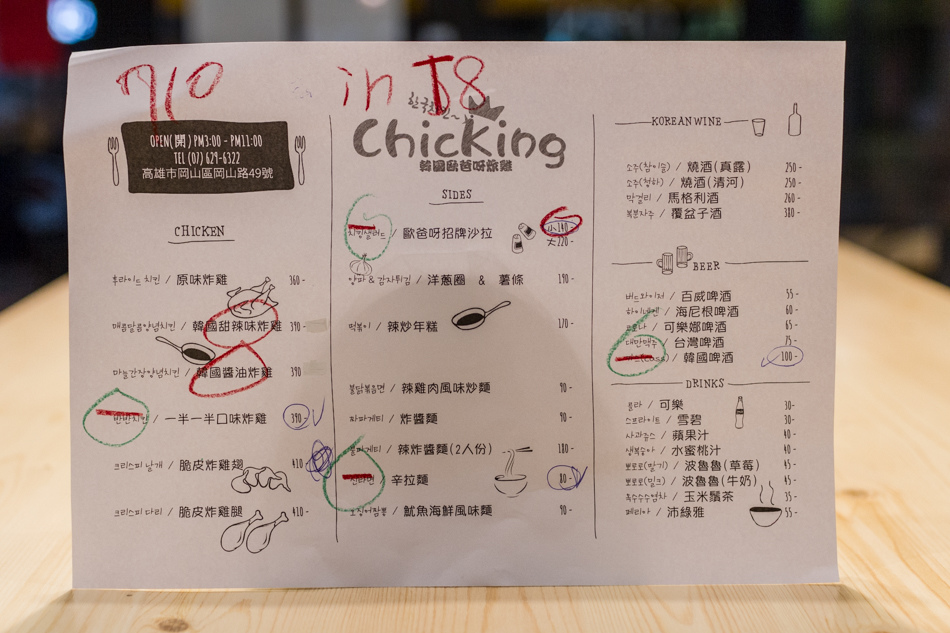 710 in 58
OPEN(開) PM3:00 - PM11:00
TEL (07) 629-6322
高雄市岡山區岡山路49號
CHICKEN
후라이드 치킨 / 原味炸雞 360-
매콤달콤양념치킨 / 韓國甜辣味炸雞 390-
마늘간장양념치킨 / 韓國醬油炸雞 390
반반치킨 / 一半一半口味炸雞 390-
크리스피 날개 / 脆皮炸雞翅 410
크리스피 다리 / 脆皮炸雞腿 410-
Chicking
韓國歐爸呀炸雞
SIDES
치킨샐러드 / 歐爸呀招牌沙拉 小140-
大220-
양파 & 감자튀김 / 洋蔥圈 & 薯條 190-
떡볶이 / 辣炒年糕 170-
불닭볶음면 / 辣雞肉風味炒麵 90-
짜파게티 / 炸醬麵 90-
불파게티 / 辣炸醬麵(2人份) 180-
신라면 / 辛拉麵 80-
오징어짬뽕 / 魷魚海鮮風味麵 90-
KOREAN WINE
소주(참이슬) / 燒酒(真露) 250-
소주(청하) / 燒酒(清河) 250-
막걸리 / 馬格利酒 260-
복분자주 / 覆盆子酒 380-
BEER
버드와이저 / 百威啤酒 55-
하이네켄 / 海尼根啤酒 60-
코로나 / 可樂娜啤酒 65-
대만맥주 / 台灣啤酒 35-
(Cass) / 韓國啤酒 100-
DRINKS
콜라 / 可樂 30-
스프라이트 / 雪碧 30-
사과쥬스 / 蘋果汁 40-
생복숭아 / 水蜜桃汁 40-
뽀로로(딸기) / 波魯魯(草莓) 45-
뽀로로(밀크) / 波魯魯(牛奶) 45-
옥수수수염차 / 玉米鬚茶 35-
페리아 / 沛綠雅 55-